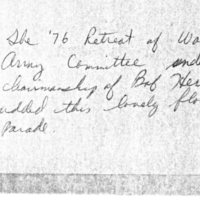 She '76 Retreat of Wa
Army Committee und
chairmanship of Bob Her
udded this lovely flo
Parade